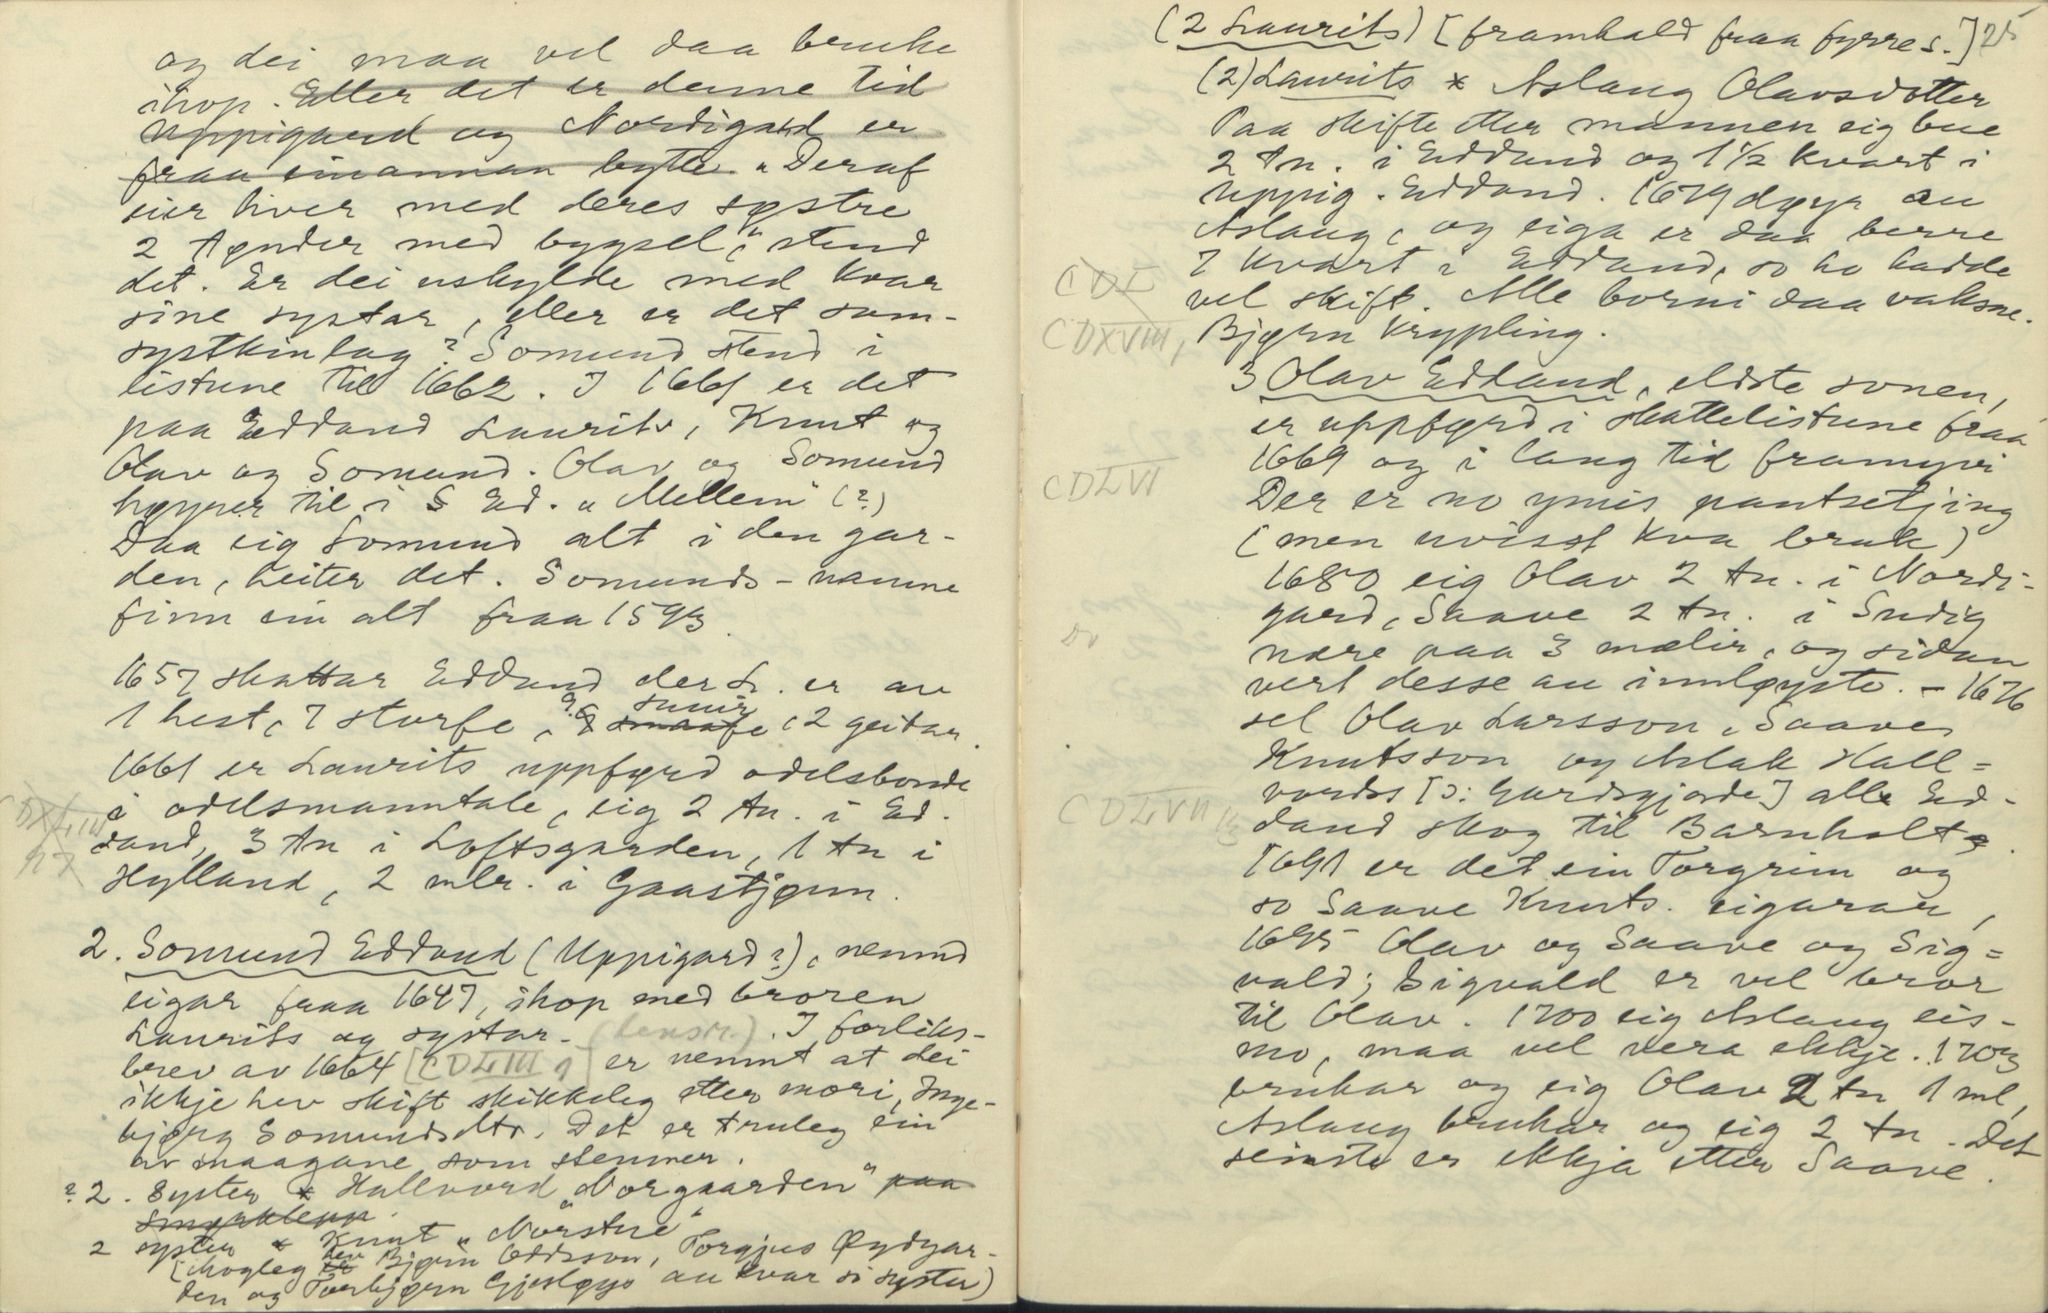 og dei maa vel daa bruke
ihop. Eller det er denne tid
Uppigard og Nordigard er
fraa einannan bytte. "Deraf
eier hver med deres søstre
2 tønder med bygsel", stend
det. Er dei uskylde med kvar
sine systar, eller er det sam-
systkinlag? Somund stend i
listune til 1662. I 1661 er det
paa Eddand Laurits, Knut og
Olav og Somund. Olav og Somund
høyrer til i S Ed. "Mellem" (?)
Daa eig Somund alt i den gar-
den, heiter det. Somunds-namne
finn ein alt fraa 1593.
1657 skattar Eddand der L. er av
1 hest, 7 storfe, 9.6 smaafe sauir, 2 geitar.
1661 er Laurits uppfyrd odelsbonde
i odelsmanntale, eig 2 tn. i Ed-
dand, 3 tn i Loftsgarden, 1 tn i
Hylland, 2 mlr. i Gaastjønn.
2. Somund Eddand (Uppigard?), nemnd
eigar fraa 1647, ihop med broren
Laurits og systar. (lensm.). I forliks-
brev av 1664 [CDLIII 1] er nemnt at dei
ikkje hev skift skikkeleg etter mori, Inge-
bjørg Somundsdtr. Det er truleg ein
av maagane som stemner.
? 2. Syster * Hallvord "Norgaarden" paa
Smørklepp.
2 syster * Knut "Nørstue"
(Mogleg er hev Bjørn Oddsson, Torgjus Øydgar-
den og Torbjørn Gjesløys au kvar si syster)
(2 Laurits) [framhald fraa fyrre s.] 25
(2) Laurits * Aslaug Olavsdotter
Paa skifte etter mannen eig bue
2 tn. i Eddand og 1 1/2 kvart i
Uppig. Eddand. 1679 døyr au
Aslaug, og eiga er daa berre
7 kvart i Eddand, so ho hadde
vel skift. Alle borni daa vaksne.
CDL
CDXVIII, Bjørn krypling.
3 Olav Eddand, eldste sonen,
er uppfyrd i skattelistune fraa
1669 og i lang tid framyvi
CDLVI
Der er no ymis pantsetjing
(men uvisst kva bruk)
1680 eig Olav 2 tn. i Nordi-
gard, Saave 2 tn. i Sudig
nære paa 3 mælir, og sidan
vert desse au innløyste. - 1676
sel Olav Larsson, Saave
Knutsson og Aslak Hall=
vordss [ɔ: Gardsgjorde] alle Ed-
CDLVII
dand skog til Barnholt.
1691 er det ein Torgrim og
so Saave Knuts. eigarar,
1695 Olav og Saave og Sig=
vald; Sigvald er vel bror
til Olav. 1700 eig Aslaug eis-
mo, maa vel vera ekkje. 1703
brukar og eig Olav 2 tn 1 ml,
Aslaug brukar og eig 2 tn. Det
seinste er ekkja etter Saave.